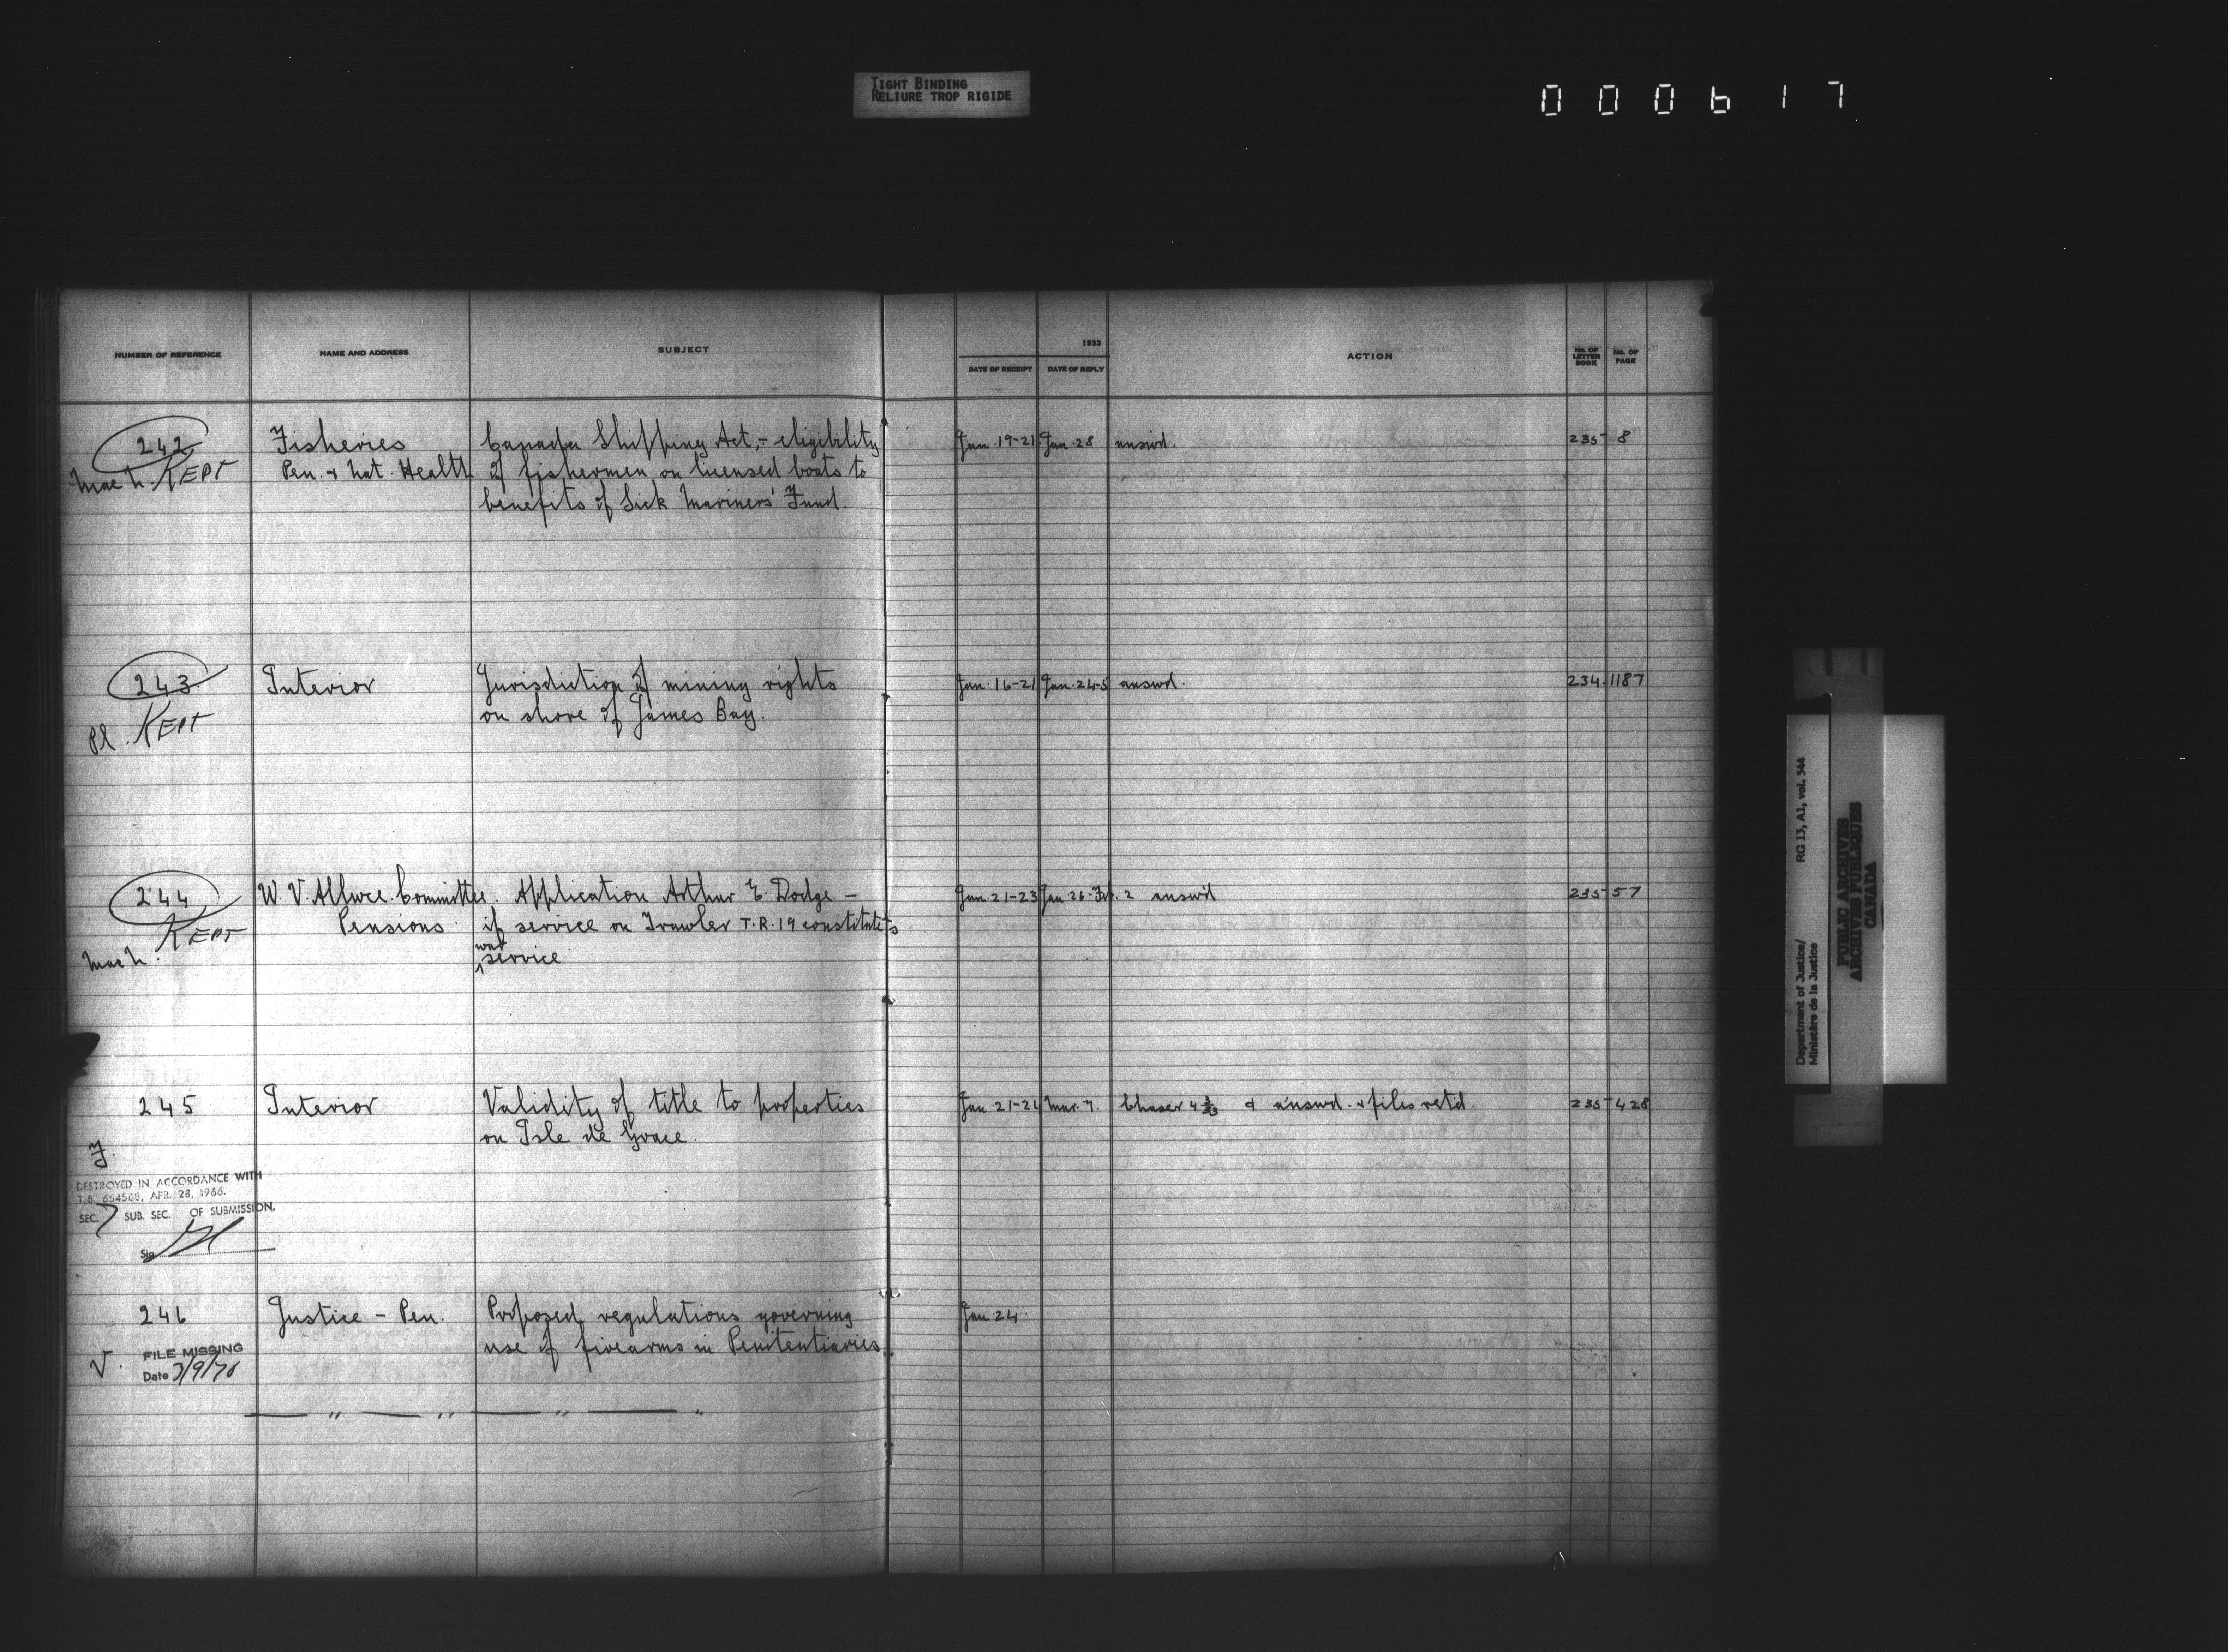 TIGHT BINDING
RELIURE TROP RIGIDE
000617
NUMBER OF REFERENCE NAME AND ADDRESS SUBJECT 1933 DATE OF RECEIPT DATE OF REPLY ACTION No. OF LETTER BOOK No. OF PAGE
242 Fisheries Canada Shipping Act,- eligibility Jan. 19-21 Jan. 28 answd. 235 8
KEPT Pen. & Nat. Health of fishermen on licensed boats to
benefits of Sick Mariners' Fund.
243 Interior Jurisdiction of mining rights Jan. 16-21 Jan. 24-5 answd. 234. 1187
Pl. KEPT on shore of James Bay.
244 W. V. Allwce. Committee. Application Arthur E. Dodge - Jan. 21-23 Jan. 26-Feb. 2 answd 235 57
KEPT Pensions if service on Trawler T.R. 19 constitutes
war
service
245 Interior Validity of title to properties Jan. 21-24 Mar. 7. Chaser & answd. & files retd. 235 428
on Isle de Grace.
F.
DESTROYED IN ACCORDANCE WITH
T.B. 654568, APR. 28, 1966.
SEC. 7 SUB. SEC. OF SUBMISSION.
Sig
246 Justice - Pen. Proposed regulations governing Jan. 24.
use of firearms in Penitentiaries.
V. FILE MISSING
Date 3/9/76
Department of Justice/
Ministère de la Justice
RG 13, A1, vol. 544
PUBLIC ARCHIVES
ARCHIVES PUBLIQUES
CANADA